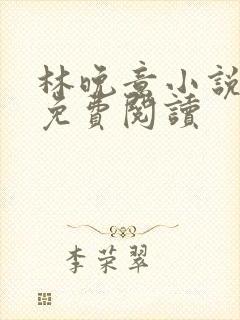 林晚意小說
免費閱讀
李荣翠